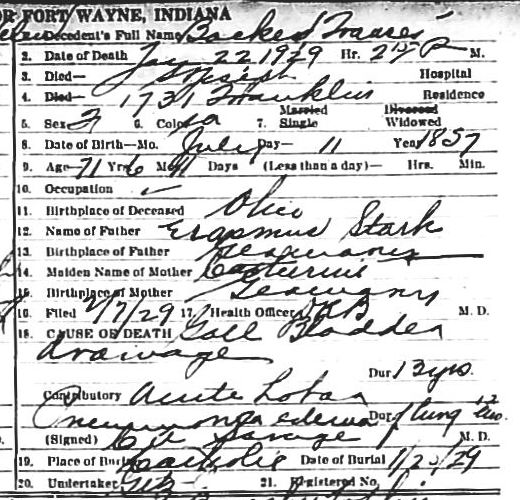 OR FORT WAYNE, INDIANA
Decedent's Full Name Backes Frances
2. Date of Death Jan 22 1929 Hr. 2 15 P M.
3. Died— St Joseph Hospital
4. Died— 1731 Franklin Residence
5. Sex F 6. Color 7. Married Single Divorced Widowed
8. Date of Birth—Mo. July Day— 11 Year 1857
9. Age 71 Yrs 6 Mo 11 Days (Less than a day)— Hrs. Min.
10. Occupation
11. Birthplace of Deceased Ohio
12. Name of Father Erasmus Stark
13. Birthplace of Father Germany
14. Maiden Name of Mother Catherine
15. Birthplace of Mother Germany
16. Filed 2/7/29 17. Health Officer M. D.
18. CAUSE OF DEATH Gall Bladder
drainage
Dur 13 yrs.
Contributory Acute Lobar
Pneumonia edema Dur. Lung
(Signed) Savage M. D.
19. Place of Burial Catholic Date of Burial 1/2 /29
20. Undertaker 21. Registered No.